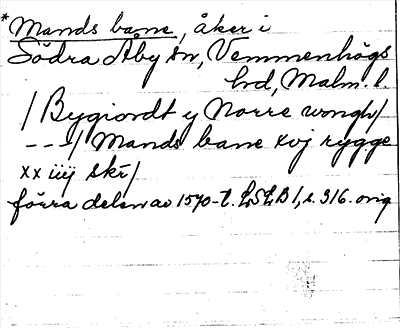 *Mands bane, åker i
Södra Åby sn, Vemmenhögs
hd, Malm. l.
/ Bygiordt y Norre wongh/
---/ Mands bane xvj rygge
xx iiij skr/
förra delen av 1570-t. LSLB 1, s. 316. orig